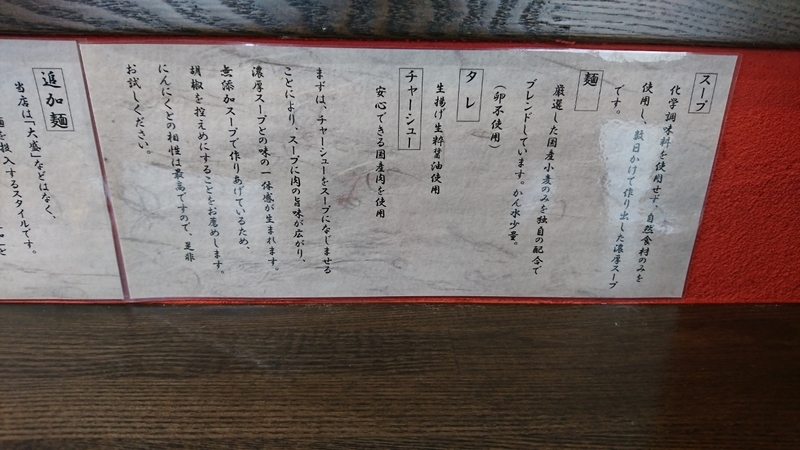 スープ
化学調味料を使用せず、自然食材のみを
使用し、数日かけて作り出した濃厚スープ
です。
麺
厳選した国産小麦のみを独自の配合で
ブレンドしています。かん水少量。
（卵不使用）
タレ
生揚げ生粋醤油使用
チャーシュー
安心できる国産肉を使用
まずは、チャーシューをスープになじませる
ことにより、スープに肉の旨味が広がり、
濃厚スープとの味の一体感が生まれます。
無添加スープで作りあげているため、
胡椒を控えめにすることをお薦めします。
にんにくとの相性は最高ですので、是非
お試しください。
追加麺
当店は「大盛」などはなく、
麺を投入するスタイルです。